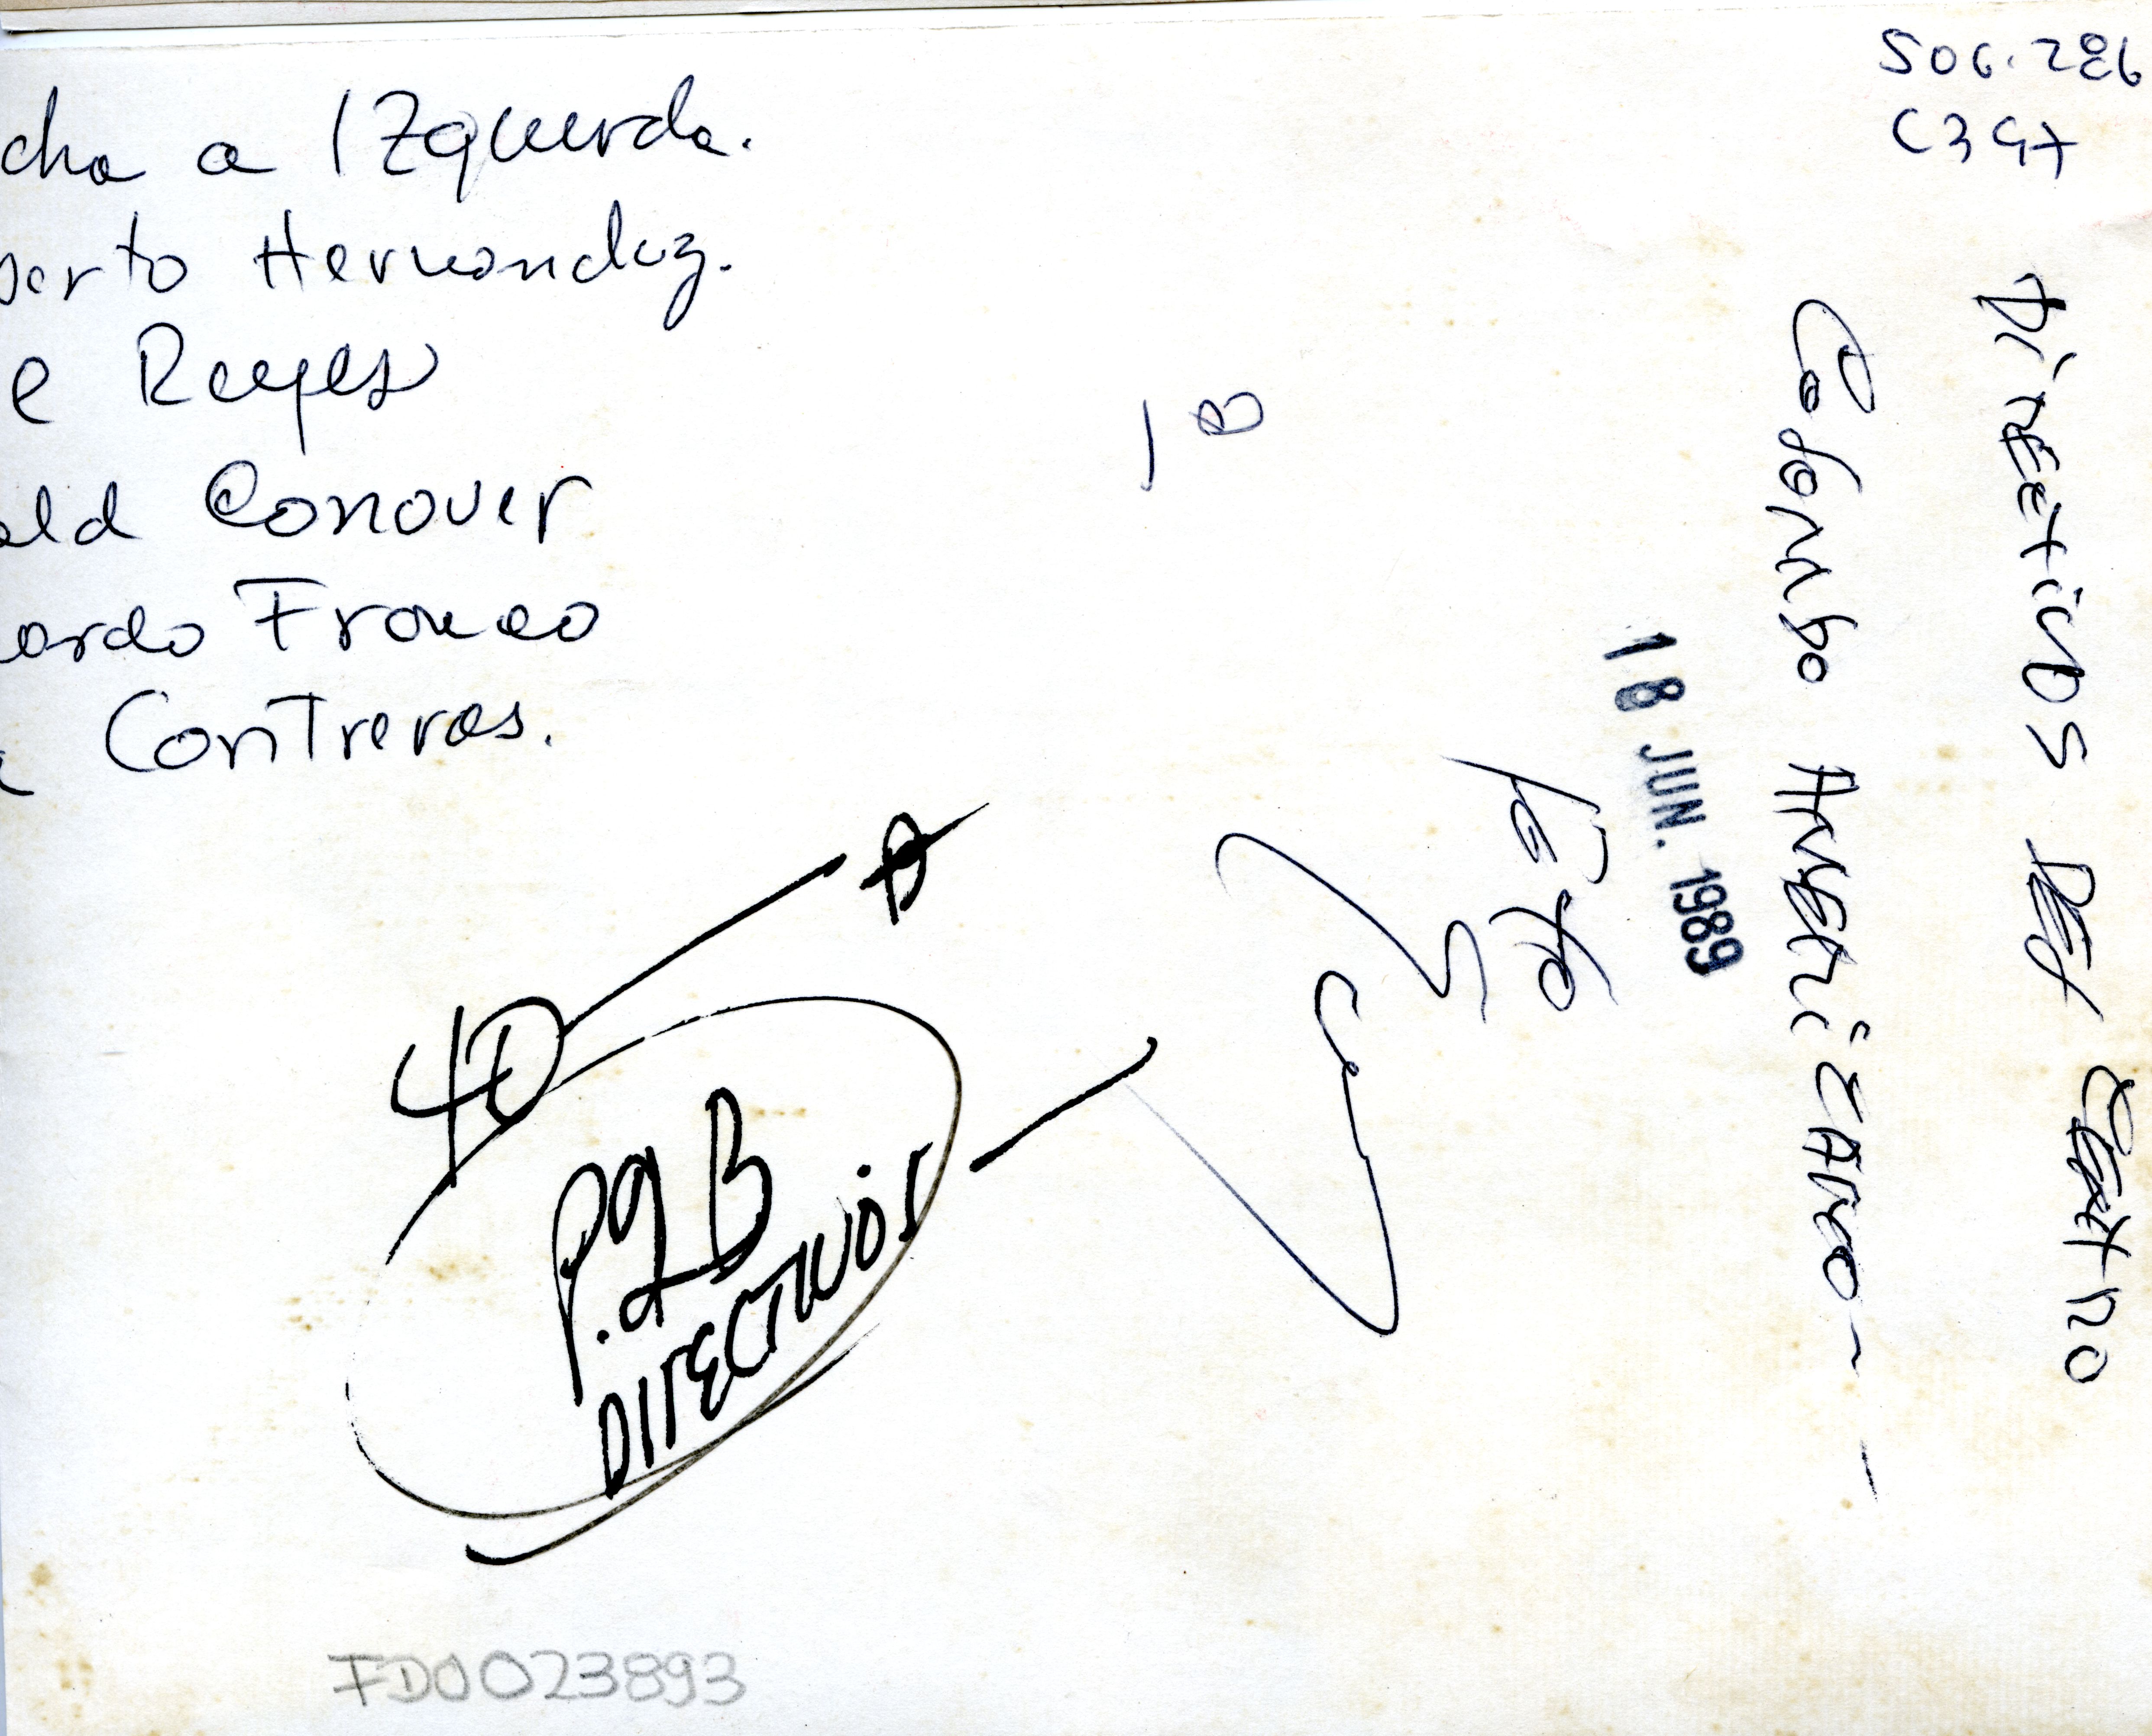 cha a Izquierda.
berto Hernandez.
e Reyes
ald Conover
ardo Franco
Contreras.
SOC. 286
C347
Directivos del Centro
Colombo Americano -
18 JUN. 1989
4D
P.2B
DIRECTIVOS
FD0023893